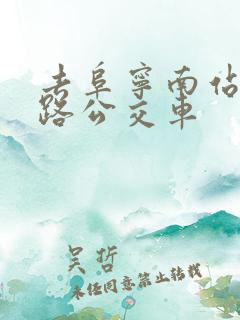 去阜宁南站
路公交车
吴哲
未经同意禁止转载